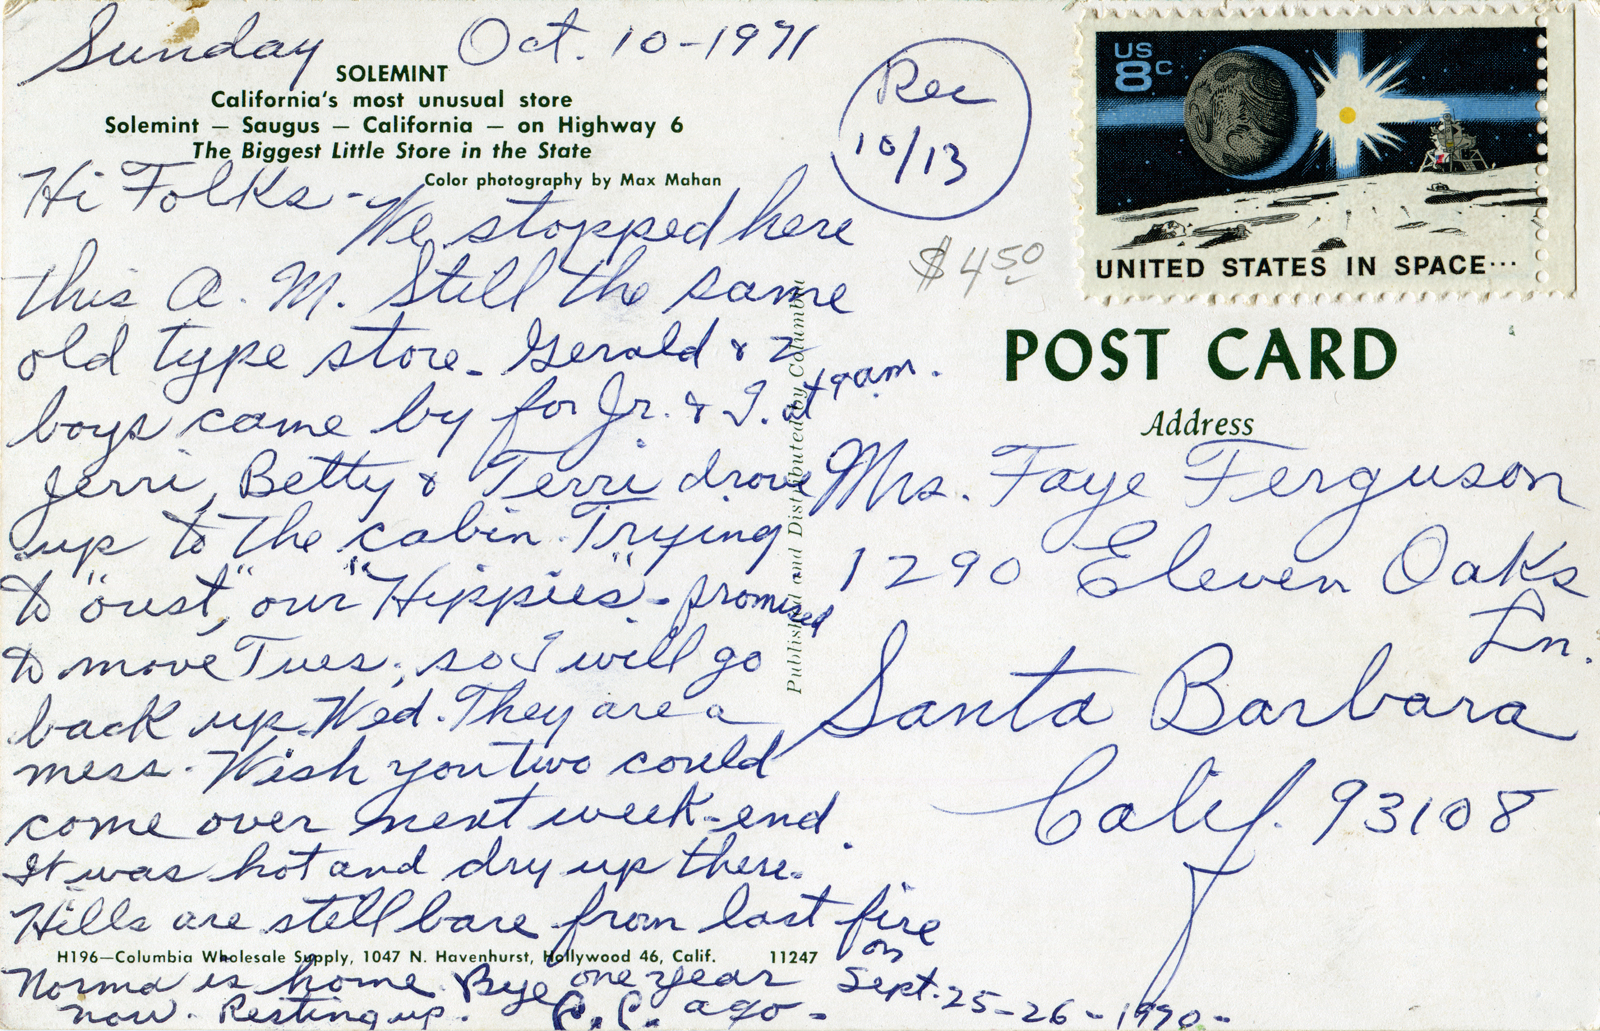 Sunday Oct. 10-1971
SOLEMINT
California's most unusual store
Solemint — Saugus — California — on Highway 6
The Biggest Little Store in the State
Color photography by Max Mahan
Hi Folks -
We stopped here
this A. M. Still the same
old type store - Gerald & 2
boys came by for Jr. & I. at 9 am.
Jerri, Betty & Terri drove
up to the cabin. Trying
to "oust", our "Hippies" - promised
to move Tues; so I will go
back up Wed. They are a
mess. Wish you two could
come over next week-end.
It was hot and dry up there.
Hills are still bare from last fire
on
Sept. 25-26-1970-
one year
ago.
H196—Columbia Wholesale Supply, 1047 N. Havenhurst, Hollywood 46, Calif. 11247
Norma is home. Bye
now. Resting up. C.C.
Published and Distributed by Columbia
Rec
10/13
$4.50
US
8c
UNITED STATES IN SPACE...
POST CARD
Address
Mrs. Faye Ferguson
1290 Eleven Oaks
Ln.
Santa Barbara
Calif. 93108